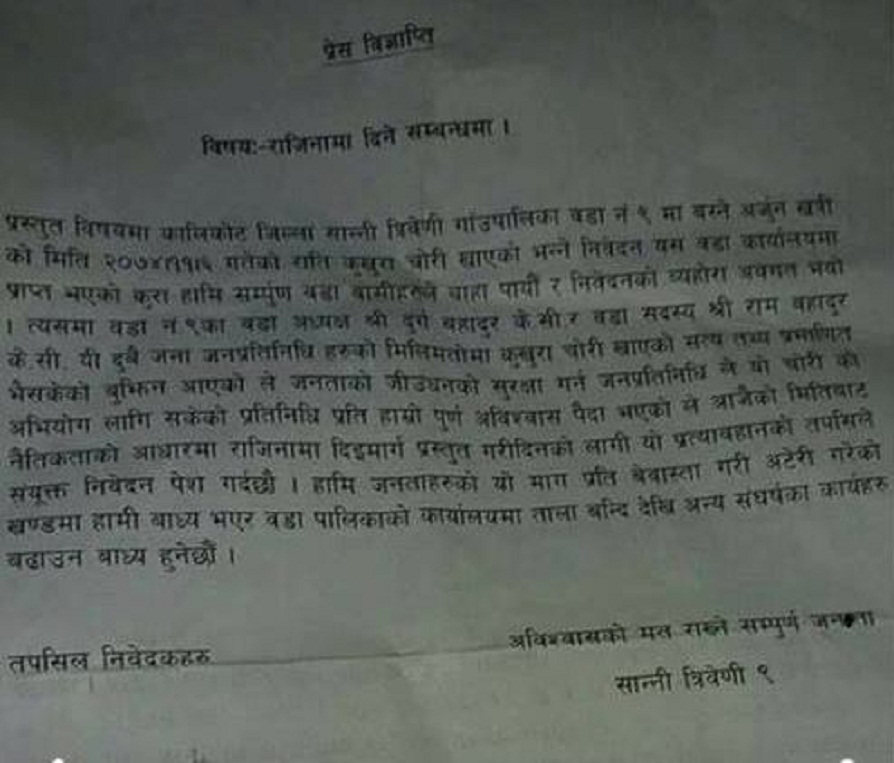 प्रेस विज्ञाप्ति
विषयः-राजिनामा दिने सम्बन्धमा ।
प्रस्तुत विषयमा कालिकोट जिल्ला सान्नी त्रिवेणी गांउपालिका वडा नं ९ मा बस्ने अर्जुन खत्री
को मिति गतेको राति कुखुरा चोरी खाएको भन्ने निवेदन यस वडा कार्यालयमा
प्राप्त भएको कुरा हामि सम्पुर्ण वडा बासीहरुले थाहा पायौं र निवेदनको व्यहोरा अवगत भयो
। त्यसमा वडा नं ९का वडा अध्यक्ष श्री दुर्गे बहादुर के.सी.र वडा सदस्य श्री राम बहादुर
के.सी. यी दुबै जना जनप्रतिनिधि हरुको मिलिमतोमा कुखुरा चोरी खाएको सत्य तथ्य प्रमाणित
भैसकेको बुझिन आएको ले जनताको जीउधनको सुरक्षा गर्न जनप्रतिनिधि ले यो चोरी को
अभियोग लागि सकेको प्रतिनिधि प्रति हाम्रो पुर्ण अविश्वास पैदा भएको ले आजैको मितिबाट
नैतिकताको आधारमा राजिनामा दिइमार्ग प्रस्तुत गरीदिनको लागी यो प्रत्यावहानको तपसिले
संयूक्त निवेदन पेश गर्दछौ । हामि जनताहरुको यो माग प्रति बेवास्ता गरी अटेरी गरेको
खण्डमा हामी बाध्य भएर वडा पालिकाको कार्यालयमा ताला बन्दि देखि अन्य संघर्षका कार्यहरु
बढाउन बाध्य हुनेछौं ।
तपसिल निवेदकहरु
अविश्वासको मत राख्ने सम्पुर्ण जनता
सान्नी त्रिवेणी ९